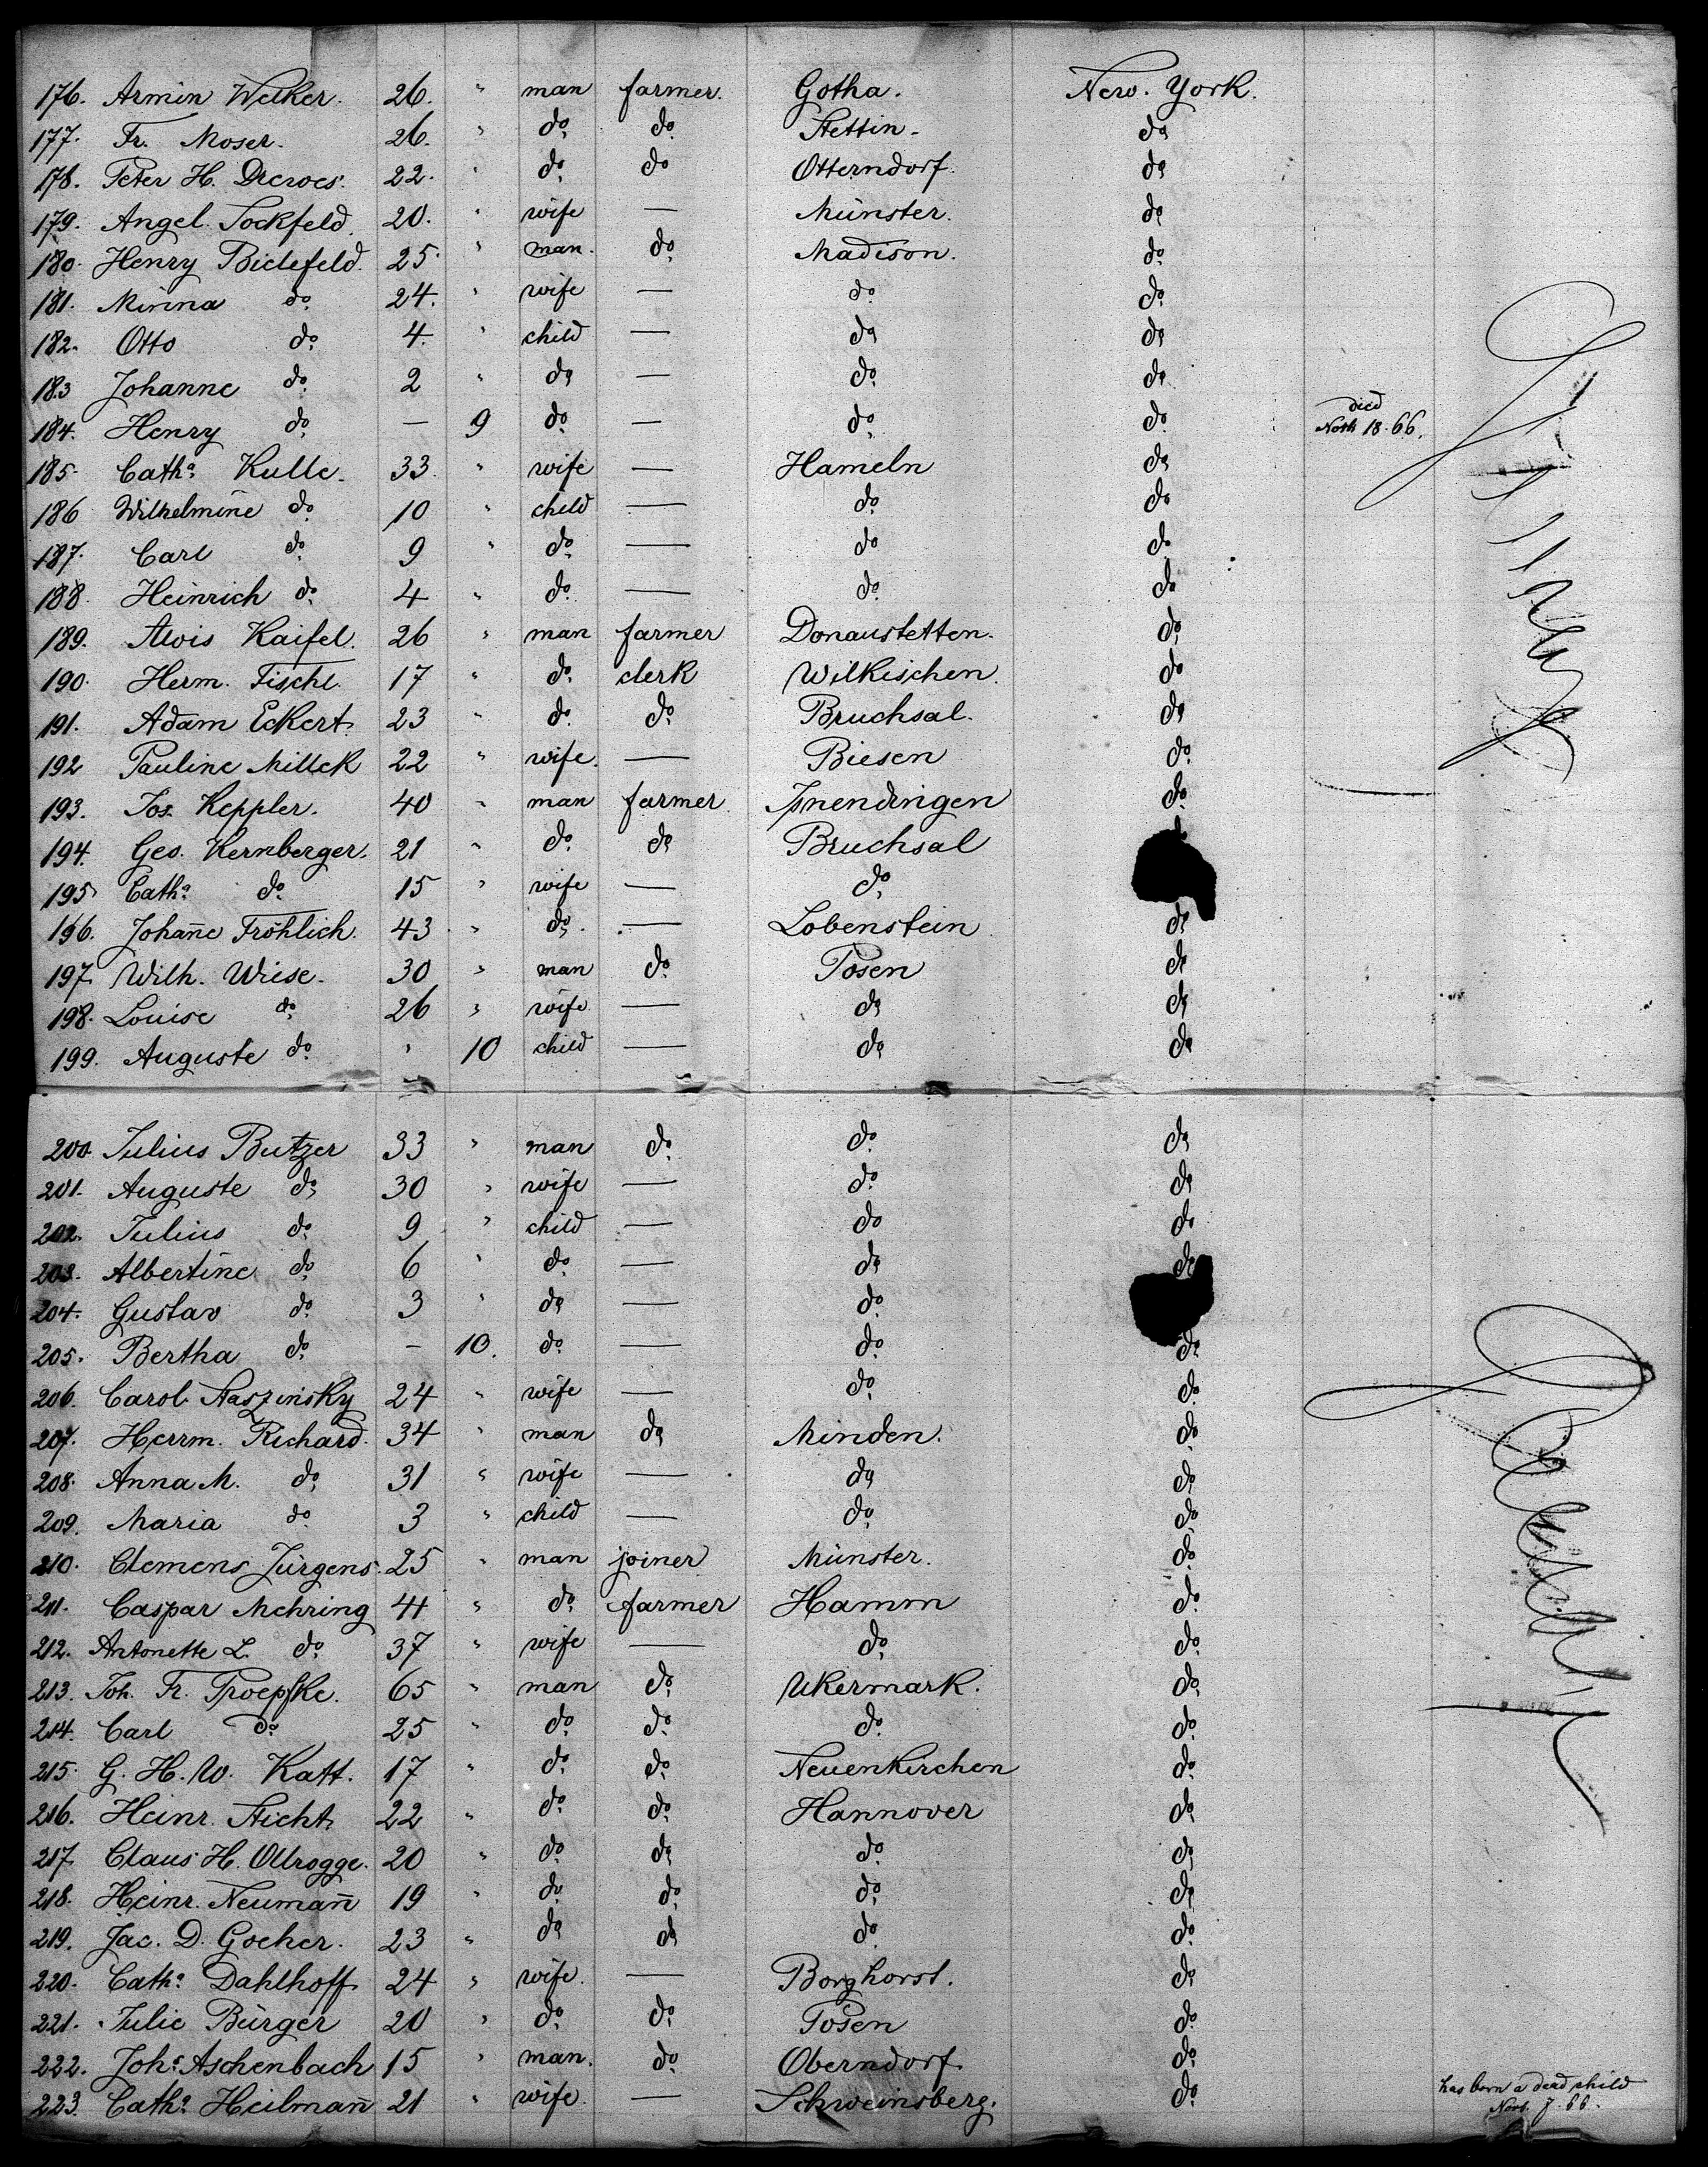 176. Armin Welker. 26. " man farmer. Gotha. New. York.
177. Fr. Moser. 26. " do do Stettin. do
178. Peter H. Drewes. 22. " do do Otterndorf. do
179. Angel. Sockfeld. 20. " wife — Münster. do
180. Henry Bielefeld. 25. " man. do Madison. do
181. Minna do 24. " wife — do do
182. Otto do 4. " child — do do
183 Johanne do 2 " do — do do
184. Henry do — 9 do — do do died
18. 66.
185. Catha Kulle. 33. " wife — Hameln do
186 Wilhelmine do 10 " child — do do
187. Carl do 9 " do — do do
188. Heinrich do 4 " do — do do
189. Alois Kaifel. 26 " man farmer Donaustetten. do
190. Herm. Fischl. 17 " do clerk Wilkischen. do
191. Adam Eckert. 23 " do do Bruchsal. do
192 Pauline Milleck 22 " wife. — Biesen do
193. Jos. Keppler. 40 " man farmer do
194. Geo. Kernberger. 21 " do do Bruchsal
195 Catha do 15 " wife — do
196. Johan̄e Fröhlich. 43 " do — Lobenstein do
197. Wilh. Wiese. 30 " man do Posen do
198. Louise do 26 " wife — do do
199. Auguste do " 10 child — do do
200. Julius Butzer 33 " man do do do
201. Auguste do 30 " wife — do do
202. Julius do 9 " child — do do
203. Albertine do 6 " do — do do
204. Gustav do 3 " do — do
205. Bertha do — 10. do — do do
206. Carol. Staszinsky 24 " wife — do do
207. Herrm. Richard. 34 " man do Minden. do
208. Anna M. do 31 " wife — do do
209. Maria do 3 " child — do do
210. Clemens Jürgens. 25 " man joiner Münster. do
211. Caspar Mehring 41 " do farmer Hamm do
212. Antonette L. do 37 " wife — do do
213. Joh. Fr. Proepfke. 65 " man do Ukermark. do
214. Carl do 25 " do do do do
215. G. H. W. Katt. 17 " do do Neuenkirchen do
216. Heinr. Sticht. 22 " do do Hannover do
217. Claus H. Ollrogge. 20 " do do do do
218. Heinr. Neuman̄ 19 " do do do do
219. Jac. D. Goeher. 23 " do do do do
220. Catha Dahlhoff 24 " wife. — Borghorst. do
221. Julie Bürger 20 " do do Posen do
222. Johs Aschenbach 15 " man. do Oberndorf. do
223. Catha Heilman̄ 21 " wife. — Schweinsberg. do has born a dead child
Novb. 7. 66.